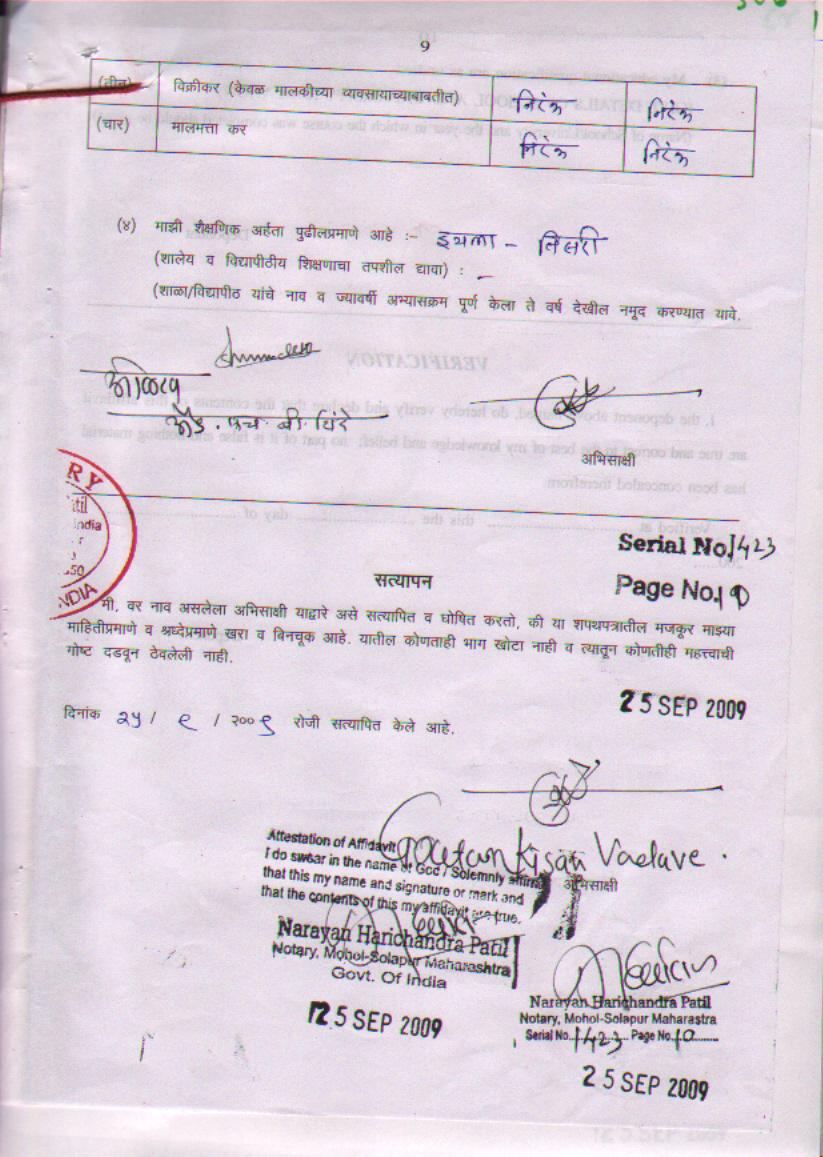 9
(तीन) विक्रीकर (केवळ मालकीच्या व्यवसायाच्याबाबतीत) निरंक निरंक
(चार) मालमत्ता कर निरंक निरंक
(४) माझी शैक्षणिक अर्हता पुढीलप्रमाणे आहे :- इयत्ता - तिसरी
(शालेय व विद्यापीठीय शिक्षणाचा तपशील द्यावा) : -
(शाळा/विद्यापीठ यांचे नाव व ज्यावर्षी अभ्यासक्रम पूर्ण केला ते वर्ष देखील नमूद करण्यात यावे.
अॅड. एच. बी. शिंदे
अभिसाक्षी
Serial No. 1423
सत्यापन
Page No. 10
मी, वर नाव असलेला अभिसाक्षी याद्वारे असे सत्यापित व घोषित करतो, की या शपथपत्रातील मजकूर माझ्या
माहितीप्रमाणे व श्रध्देप्रमाणे खरा व बिनचूक आहे. यातील कोणताही भाग खोटा नाही व त्यातून कोणतीही महत्त्वाची
गोष्ट दडवून ठेवलेली नाही.
25 SEP 2009
दिनांक २५ / ९ / २००९ रोजी सत्यापित केले आहे.
Attestation of Affidavit
I do swear in the name of God / Solemnly affirm
that this my name and signature or mark and
that the contents of this my affidavit are true.
Gautam Kisan Vadave.
अभिसाक्षी
Narayan Harichandra Patil
Notary, Mohol-Solapur Maharashtra
Govt. Of India
25 SEP 2009
Narayan Harichandra Patil
Notary, Mohol-Solapur Maharastra
Serial No. 1423 Page No. 10
25 SEP 2009